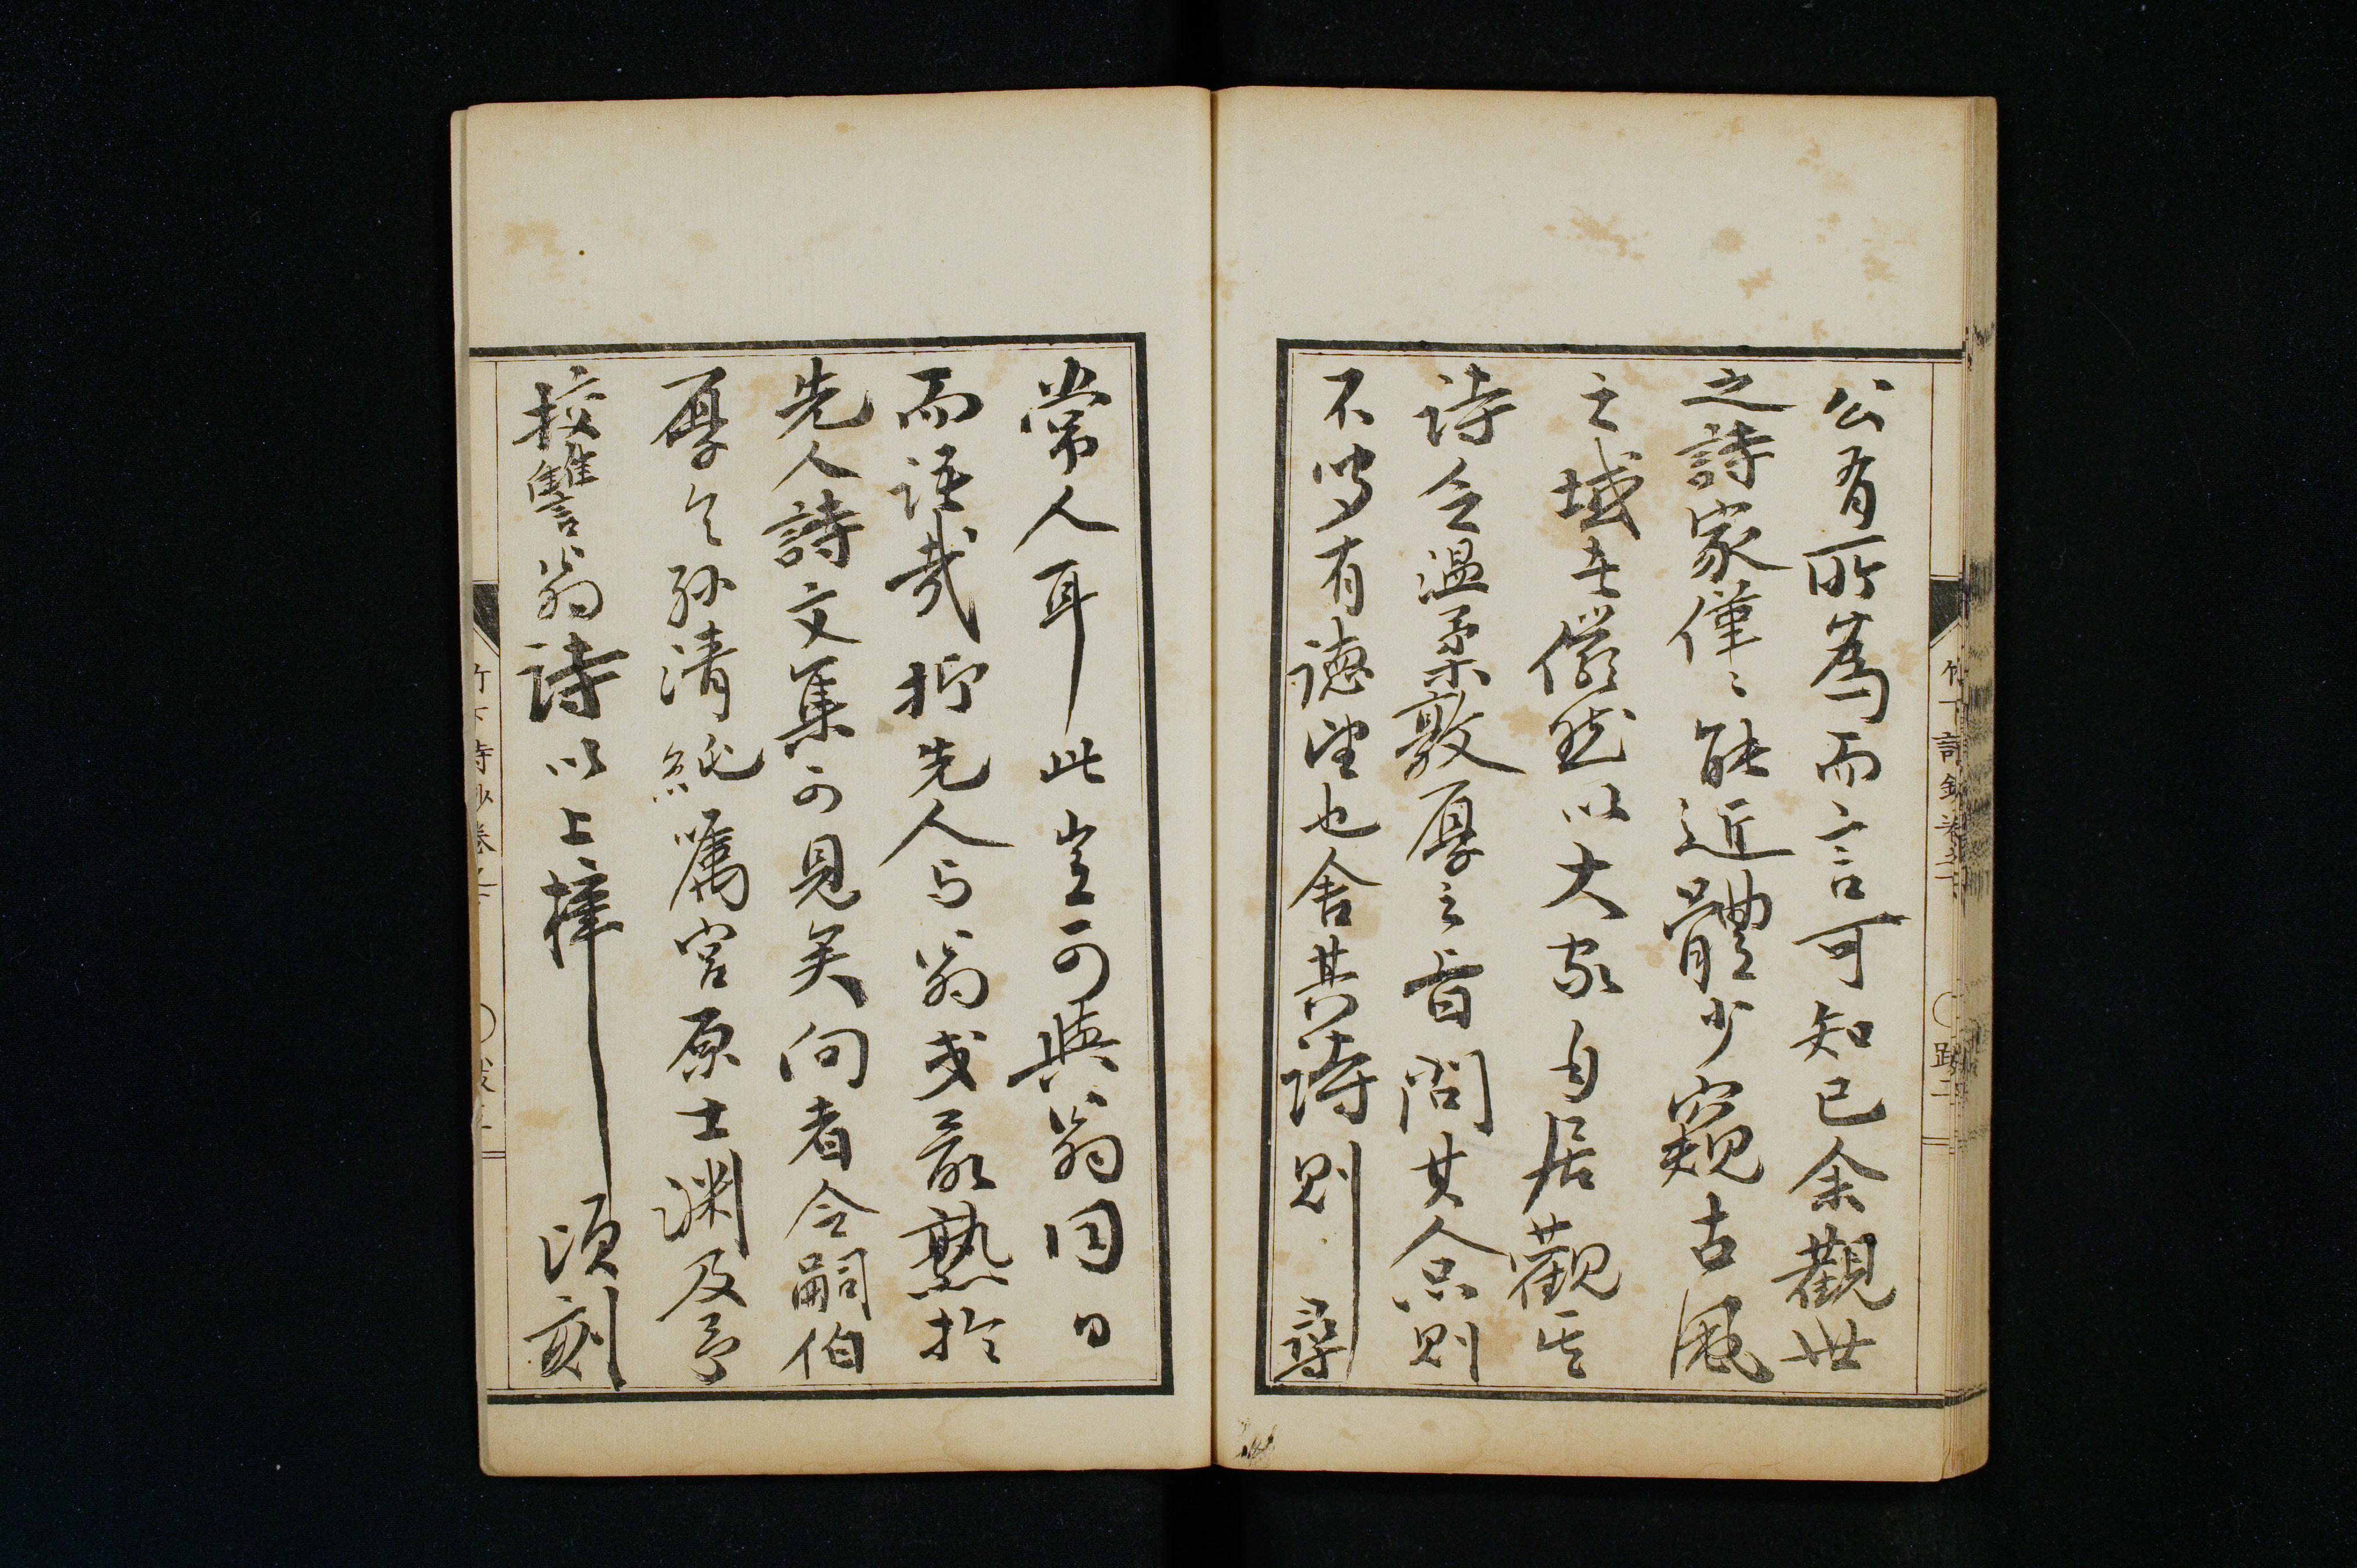 公有所為而言可知已余觀世
之詩家僅〻能近體少窺古風
之域者儼然以大家自居觀其
詩乏温柔敦厚之旨問其人品則
不聞有德望也舍其詩則尋
常人耳此豈可與翁同日
而語哉抑先人与翁交最熟於
先人詩文集可見矣向者令嗣伯
厚令孫清純囑宮原士淵及予
校讐翁詩以上擇頃刻
竹下詩鈔卷之下 〇跋二